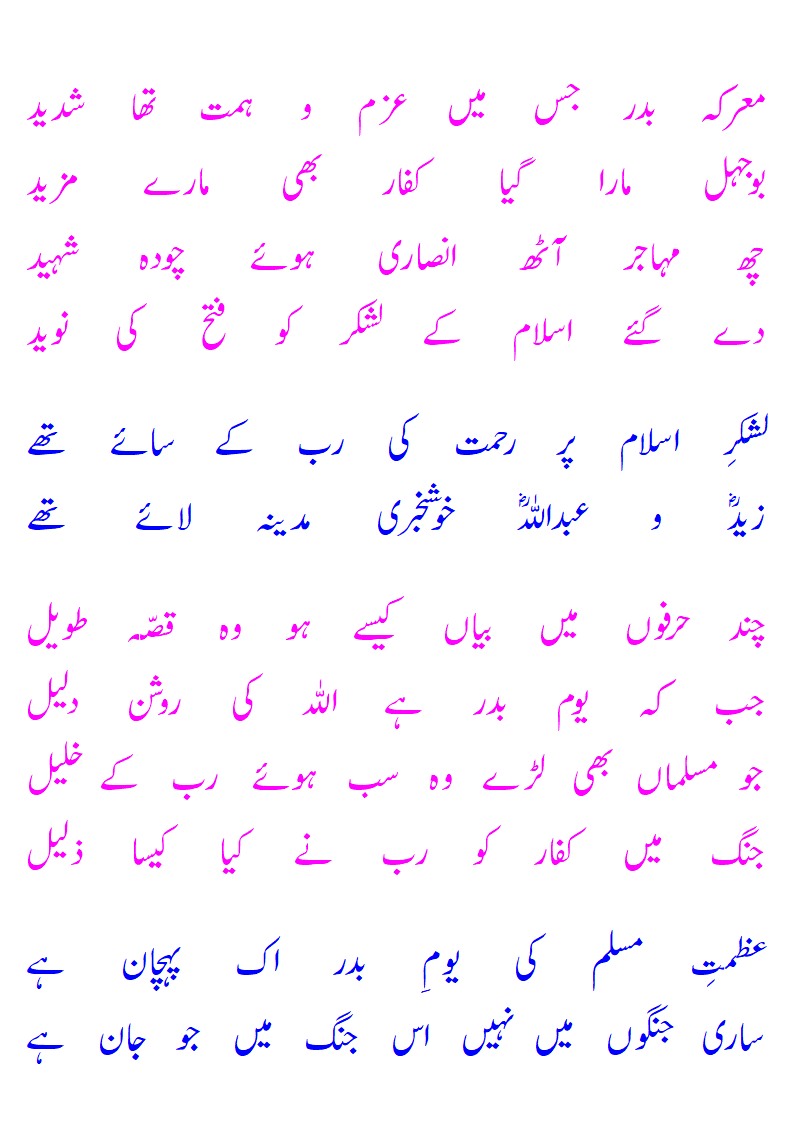 معرکہ بدر جس میں عزم و ہمت تھا شدید
بوجہل مارا گیا کفار بھی مارے مزید
چھ مہاجر آٹھ انصاری ہوئے چودہ شہید
دے گئے اسلام کے لشکر کو فتح کی نوید
لشکرِ اسلام پر رحمت کی رب کے سائے تھے
زیدؓ و عبداللہؓ خوشخبری مدینہ لائے تھے
چند حرفوں میں بیاں کیسے ہو وہ قصّہ طویل
جب کہ یوم بدر ہے اللہ کی روشن دلیل
جو مسلماں بھی لڑے وہ سب ہوئے رب کے خلیل
جنگ میں کفار کو رب نے کیا کیسا ذلیل
عظمتِ مسلم کی یومِ بدر اک پہچان ہے
ساری جنگوں میں نہیں اس جنگ میں جو جان ہے